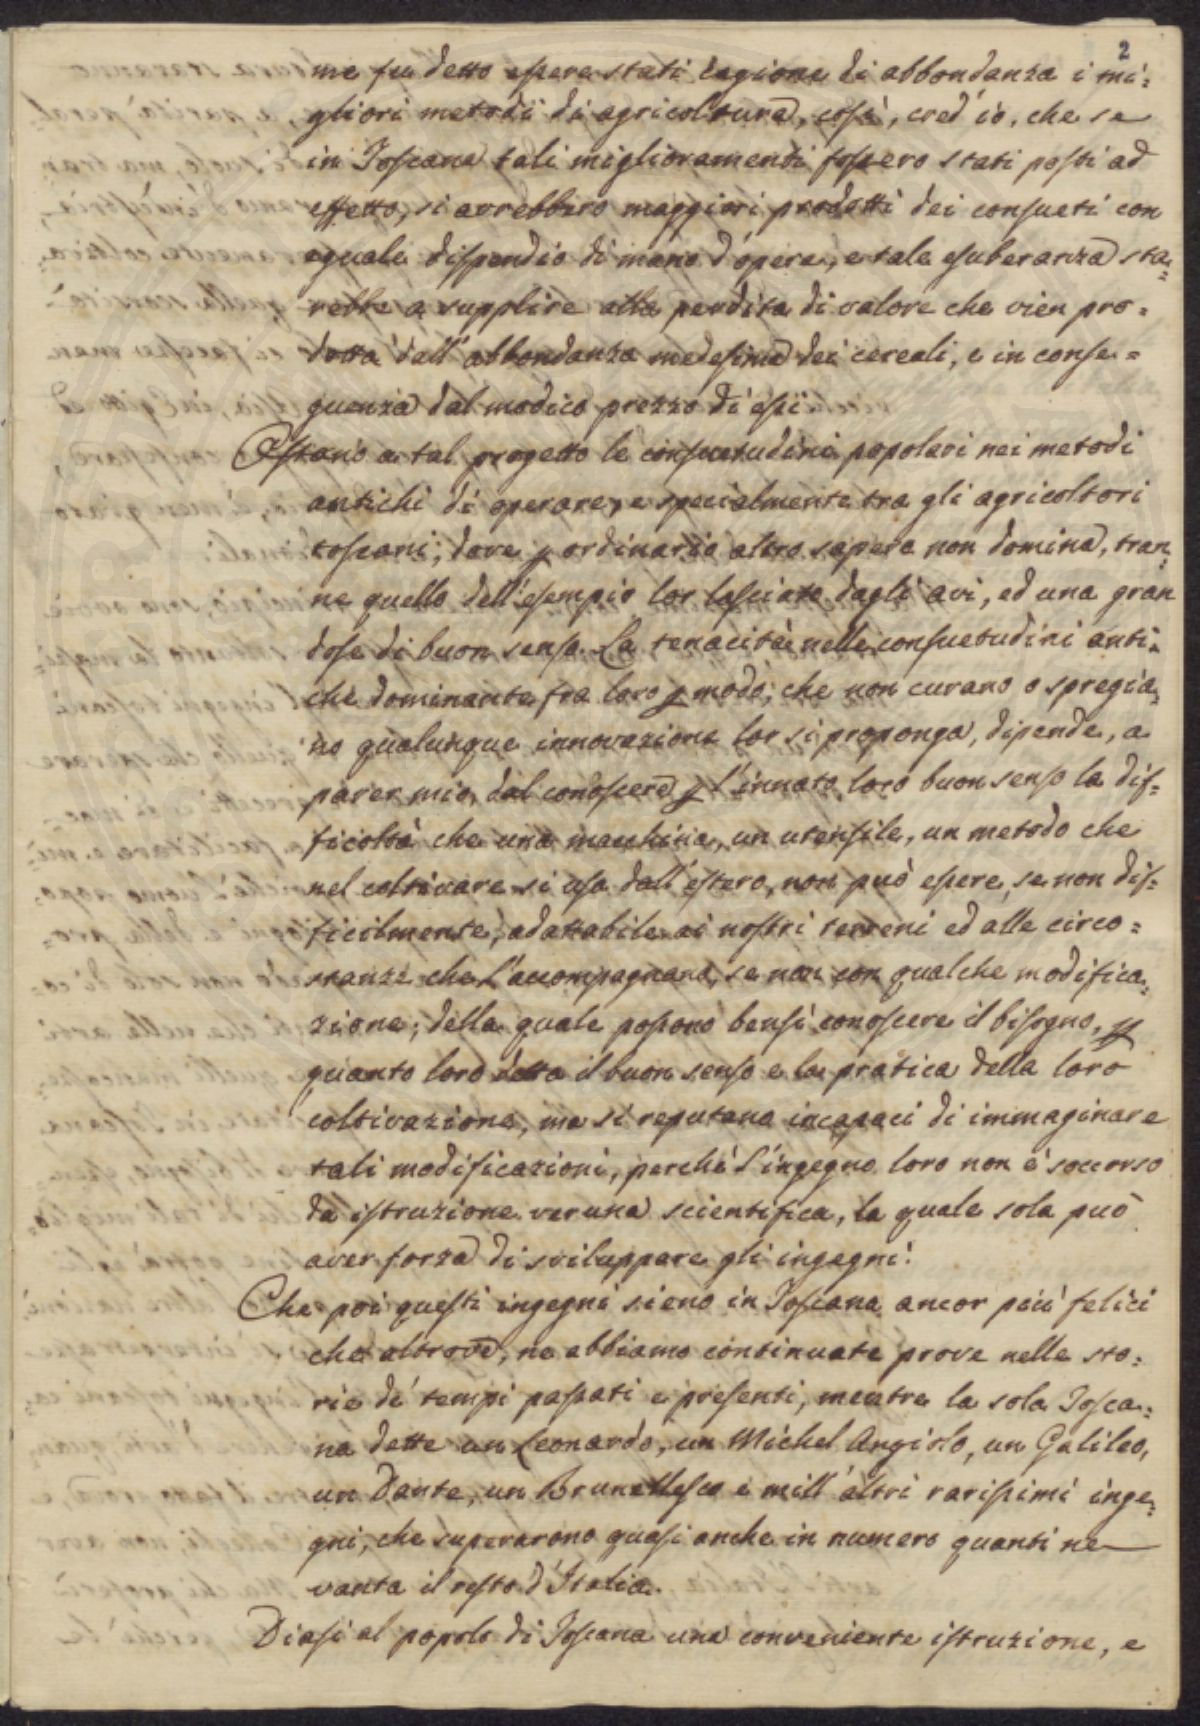 2
me fu detto essere stati cagione di abbondanza i mi=
gliori metodi di agricoltura, così, cred'io, che se
in Toscana tali miglioramenti fossero stati posti ad
effetto, si avrebbero maggiori prodotti dei consueti con
eguale dispendio di mano d'opera, e tale esuberanza sta=
rebbe a supplire alla perdita di valore che vien pro=
dotta dall'abbondanza medesima dei cereali, e in conse=
guenza dal modico prezzo di essi.
Ostano a tal progetto le consuetudini popolari nei metodi
antichi di operare, e specialmente tra gli agricoltori
toscani, dove p ordinario altro sapere non domina, tran=
ne quello dell'esempio lor lasciato dagli avi, ed una gran
dose di buon senso. La tenacità nelle consuetudini anti=
che dominante fra loro p modo, che non curano o spregia=
no qualunque innovazione lor si proponga, dipende, a
parer mio, dal conoscere p l'innato loro buon senso la dif=
ficoltà che una macchina, un utensile, un metodo che
nel coltivare si usa dall'estero, non può essere, se non dif=
ficilmente, adattabile ai nostri terreni ed alle circo=
stanze che l'accompagnano, se non con qualche modifica=
zione; della quale possono bensì conoscere il bisogno, p
quanto loro detta il buon senso e la pratica della loro
coltivazione, ma si reputano incapaci di immaginare
tali modificazioni, perchè l'ingegno loro non è soccorso
da istruzione veruna scientifica, la quale sola può
aver forza di sviluppare gli ingegni.
Che poi questi ingegni sieno in Toscana ancor più felici
che altrove, ne abbiamo continuate prove nelle sto=
rie de' tempi passati e presenti, mentre la sola Tosca=
na dette un Leonardo, un Michel Angiolo, un Galileo,
un Dante, un Brunellesco e mill'altri rarissimi inge=
gni, che superarono quasi anche in numero quanti ne
vanta il resto d'Italia.
Diasi al popolo di Toscana una conveniente istruzione, e